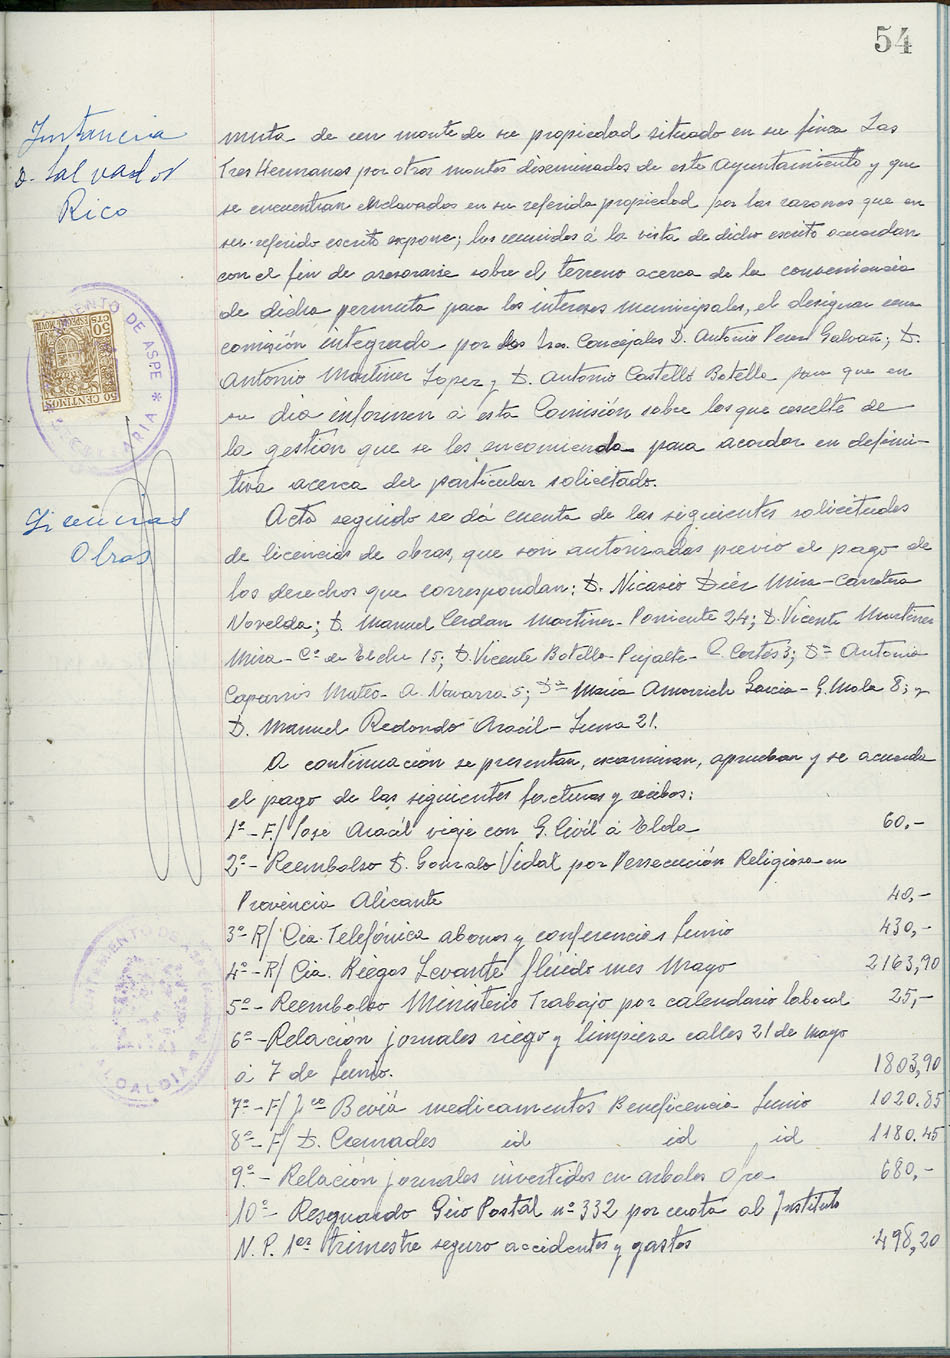 54
Instancia
D. Salvador
Rico
muta de un monte de su propiedad situado en su finca Las
Tres Hermanas por otros montes diseminados de este Ayuntamiento y que
se encuentran enclavados en su referida propiedad por las razones que en
su referido escrito expone; los reunidos á la vista de dicho escrito acuerdan
con el fin de asesorarse sobre el terreno acerca de la conveniencia
de dicha permuta para los intereses municipales, el designar una
comisión integrada por los Sres. Concejales D. Antonio Perez Galvañ; D.
Antonio Martinez López y D. Antonio Castelló Botella para que en
su dia informen á esta Comisión sobre los que resulte de
la gestión que se les encomienda para acordar en defini-
tiva acerca del particular solicitado.
Licencias
Obras
Acto seguido se dá cuenta de las siguientes solicitudes
de licencias de obras, que son autorizadas previo el pago de
los derechos que correspondan: D. Nicasio Diez Mira-Carretera
Novelda; D. Manuel Cerdan Martinez-Poniente 24; D. Vicente Martinez
Mira-Cº de Elche 15; D. Vicente Botella Pujalte- Cortés 3; Dª Antonia
Caparrós Mateo-A. Navarra 5; Dª Maria Amorrich Garcia-G. Mola 8; y
D. Manuel Redondo Aracil-Luna 21.
A continuación se presentan, examinan, aprueban y se acuerda
el pago de las siguientes facturas y recibos:
1º-F/ Jose Aracil viaje con G. Civil á Elda 60,-
2º-Reembolso D. Gonzalo Vidal por Persecución Religiosa en
Provincia Alicante 40,-
3º-R/ Cia. Telefónica abonos y conferencias Junio 430,-
4º-R/ Cia. Riegos Levante flúido mes Mayo 2163,90
5º-Reembolso Ministerio Trabajo por calendario laboral 25,-
6º-Relación jornales riego y limpieza calles 21 de Mayo
á 7 de Junio. 1803,90
7º-F/ Fco Beviá medicamentos Beneficencia Junio 1020.85
8º-F/ D. Cremades id id id 1180.45
9º-Relación jornales invertidos en arboles 680,-
10º-Resguardo Giro Postal nº 332 por cuota al Instituto
N. P. 1er trimestre seguro accidentes y gastos 498,20
AYUNTAMIENTO DE ASPE
SECRETARIA
50 CTS
ESPECIAL MOVIL
50 CENTIMOS
AYUNTAMIENTO DE ASPE
ALCALDIA